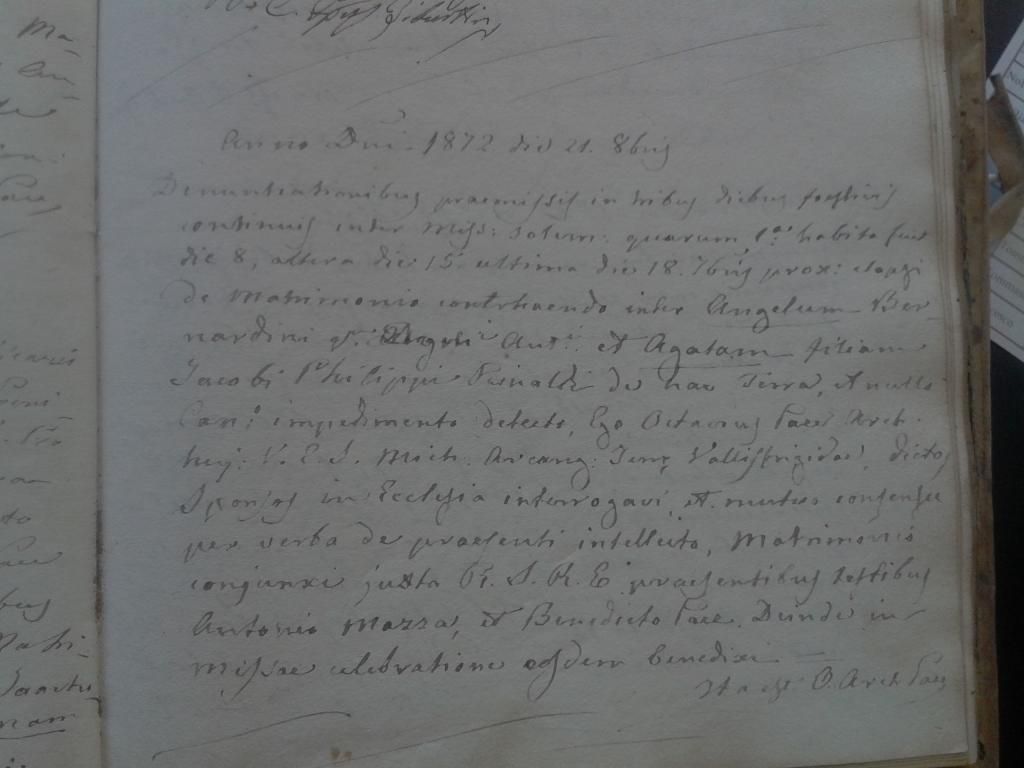 Anno Dni. 1872 die 21. 8bris
Denuntiationibus praemissis in tribus diebus festivis
continuis inter Miss: Solem: quarum 1a. habita fuit
die 8, altera die 15 ultima die 18. 7bris prox: elapsi
de Matrimonio contrhaendo inter Angelum Ber-
nardini q. Angeli Ant: et Agatam filiam
Jacobi Philippi Rinaldi de hac Terra, et nullo
Can: impedimento detecto, Ego Octavius Pace Arch.
huj: V. E. S. Mich. Arcang: Terrae Vallisfrigidae, dictos
Sponsos in Ecclesia interrogavi, et mutuo consensu
per verba de praesenti intellecto, Matrimonio
conjunxi juxta R. S. R. E praesentibus testibus
Antonio Mozza, et Benedicto Pace. Deinde in
Missae celebratione eosdem benedixi =
Ita est O. Arch Pace
Ma-
Pace
cario
bus
Matri-
nam